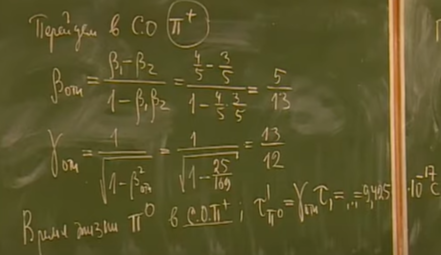 Перейдем в СО π⁺
βотн = (β₁-β₂)/(1-β₁β₂) = (4/5 - 3/5)/(1 - 4/5·3/5) = 5/13
γотн = 1/√(1-β²отн) = 1/√(1-25/169) = 13/12
Время жизни π⁰ в С.О.π⁺; τ'π⁰ = γотн τ₁ = ... = 9,425 · 10⁻¹⁷ с